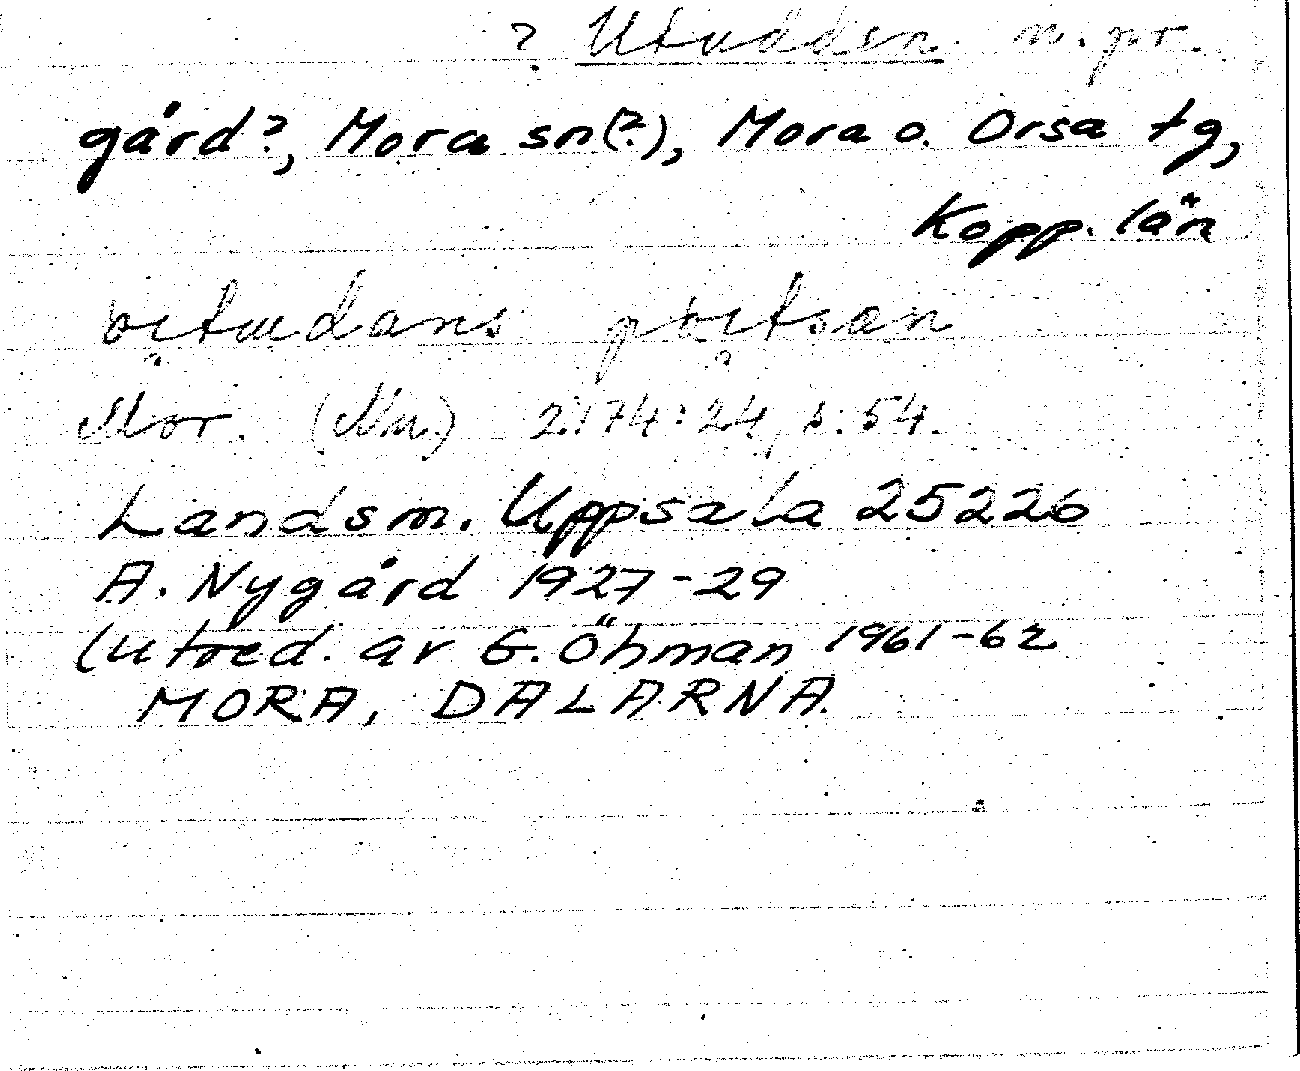 ? Utudden n. pr.
gård?, Mora sn(?), Mora o. Orsa tg,
Kopp. län
Mor. (Nm) 2:174:24, s:54.
Landsm. Uppsala 25226
A. Nygård 1927-29
(utred. av G. Öhman 1961-62
MORA, DALARNA